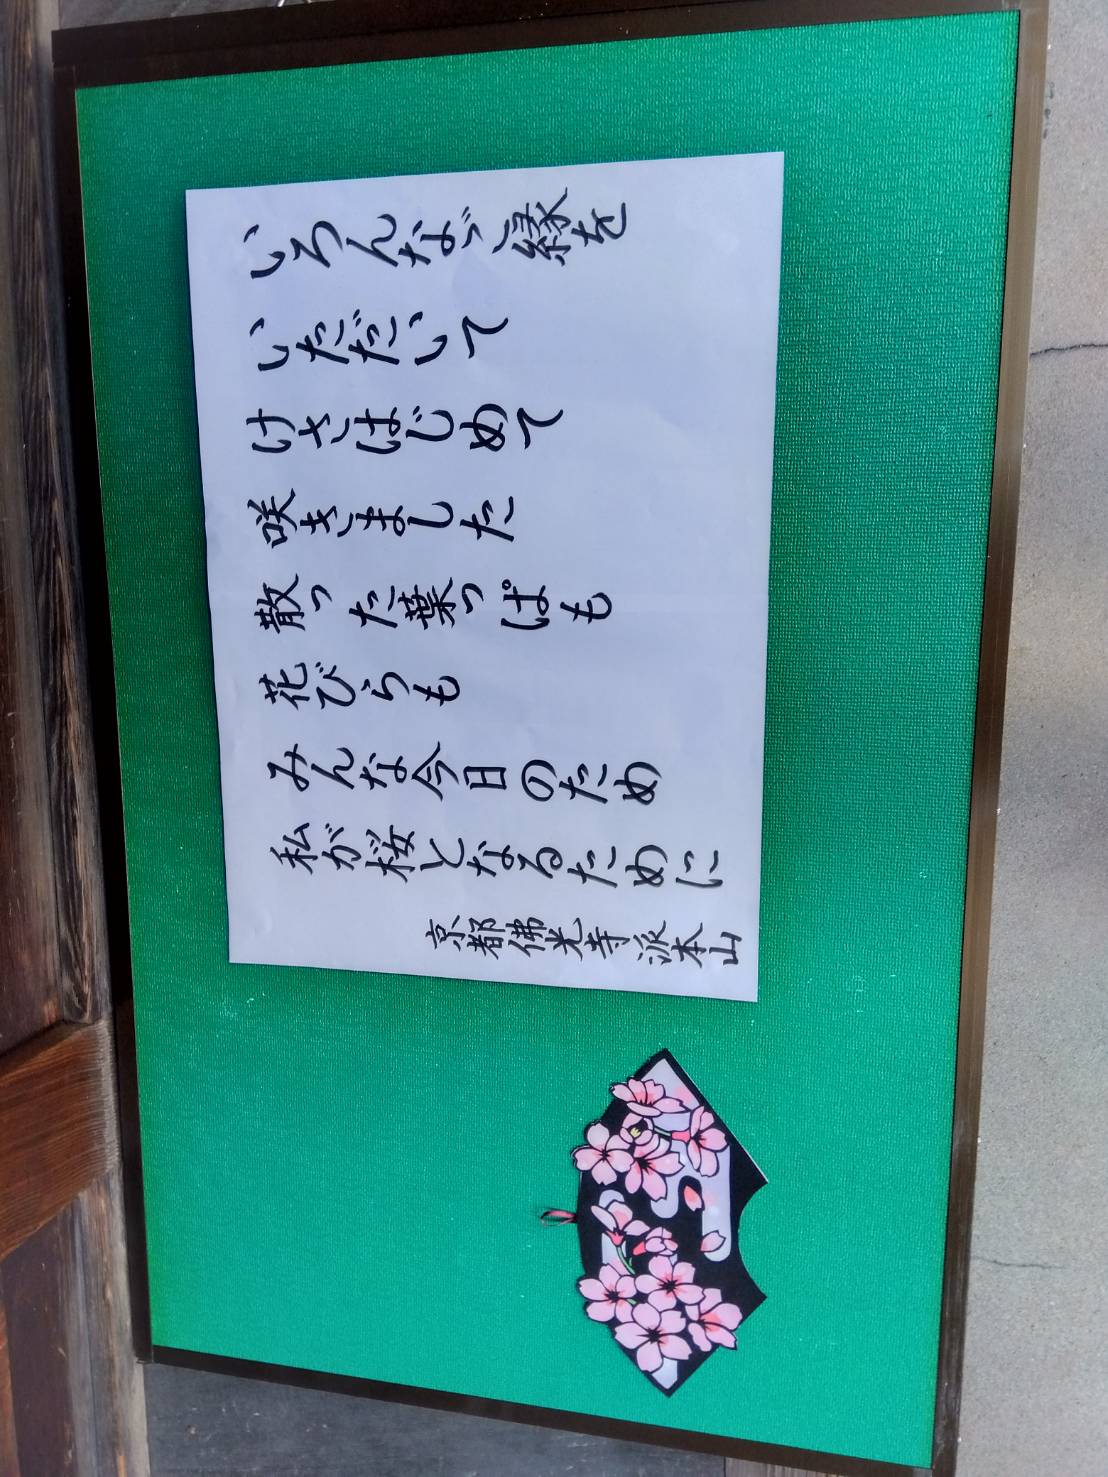 いろんなご縁を
いただいて
けさはじめて
咲きました
散った葉っぱも
花びらも
みんな今日のため
私が桜となるために
京都佛光寺派本山